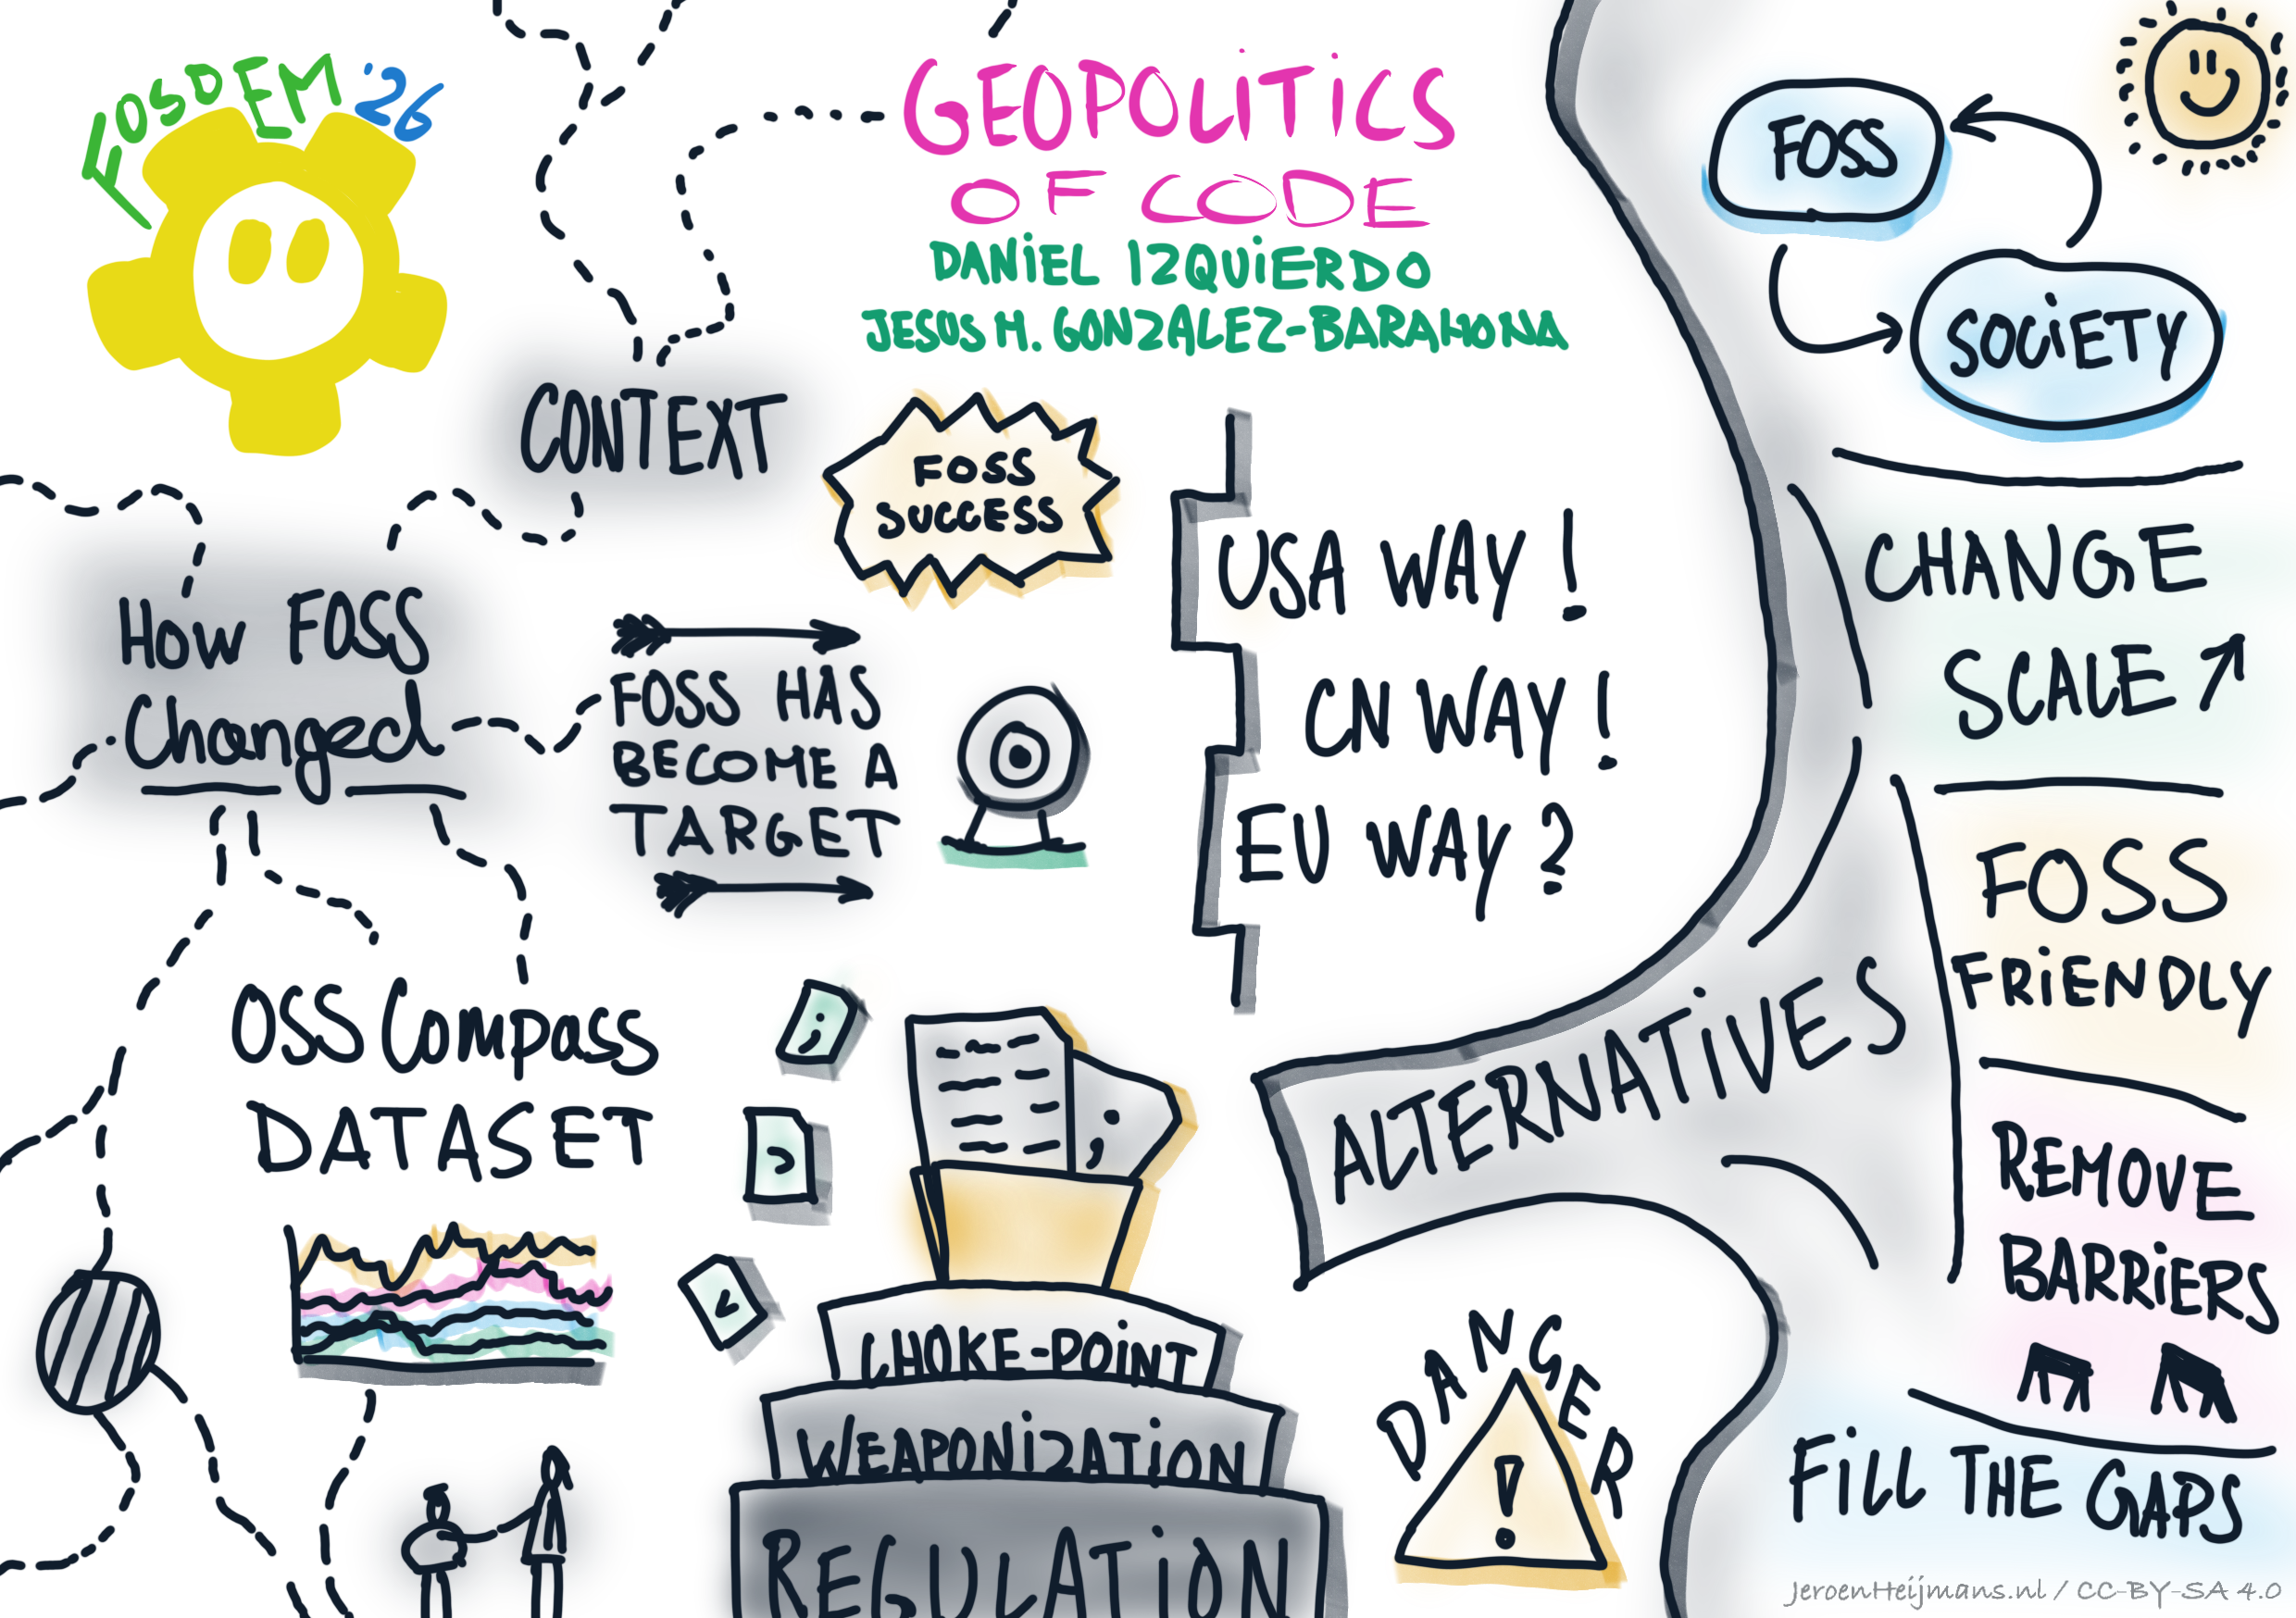 FOSDEM '26
GEOPOLITICS
OF CODE
DANIEL IZQUIERDO
JESUS M. GONZALEZ-BARAHONA
CONTEXT
FOSS
SUCCESS
How FOSS
Changed
FOSS HAS
BECOME A
TARGET
USA WAY!
CN WAY!
EU WAY?
OSS Compass
DATASET
;
;
CHOKE-POINT
WEAPONIZATION
REGULATION
DANGER
!
ALTERNATIVES
FOSS
SOCIETY
CHANGE
SCALE ↗
FOSS
FRIENDLY
REMOVE
BARRIERS
FILL THE GAPS
JeroenHeijmans.nl / CC-BY-SA 4.0